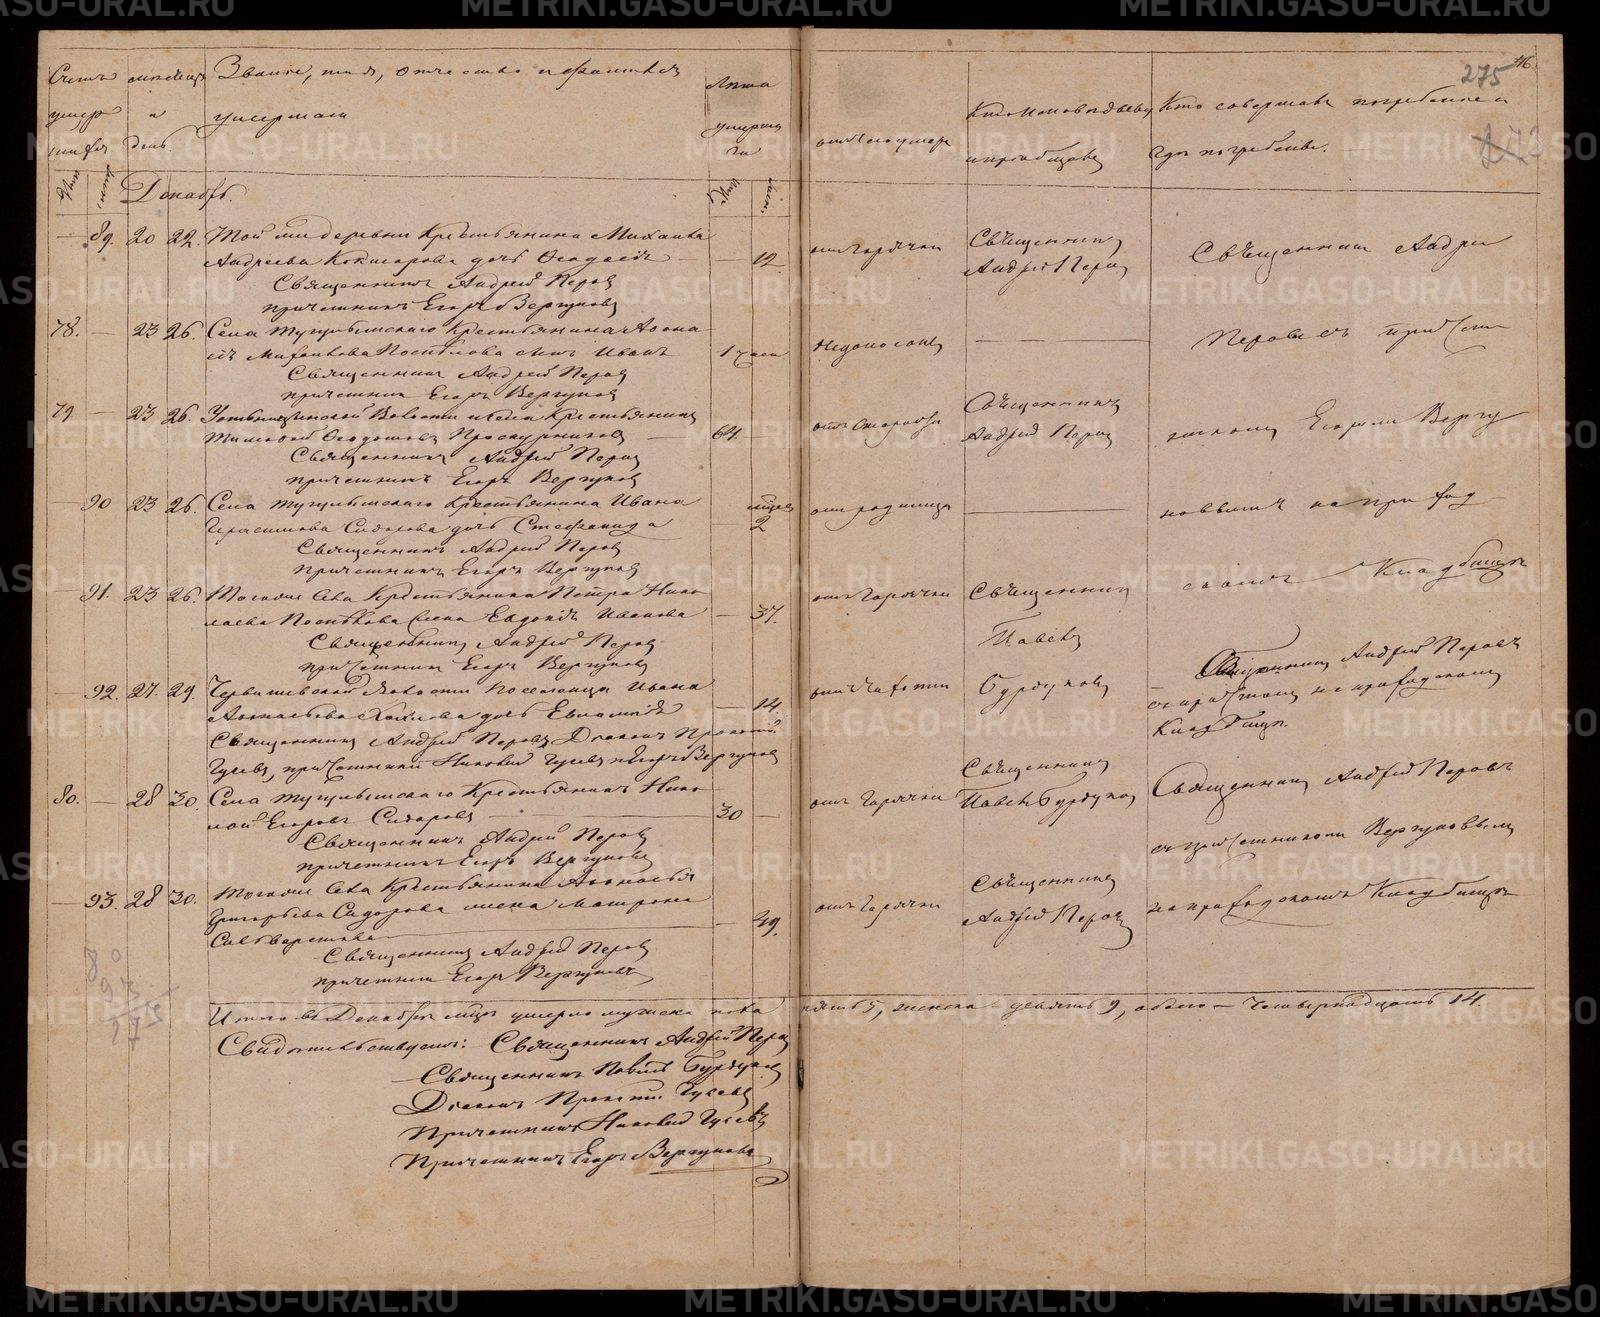 275
Счетъ умер шихъ
мѣсяцъ и день.
Званіе, имя, отчество и фамилія умершаго
Лѣта умершаго
отъ чего умеръ
Кто исповѣдывалъ и пріобщалъ
Кто совершалъ погребеніе и гдѣ погребены.
муж. жен. Декабрь. муж. жен.
— 89. 20 22. Той же деревни Крестьянина Михаила
Андреева дочь Ѳеодосія — 12. отъ горячки Священникъ Андрей Перов
Священникъ Андрей Перов
причетникъ Егоръ Вергунов
78. — 23 26. Села Тугулымскаго Крестьянина Аѳона
сія Михайлова Поспѣлова сынъ Иванъ 1 часа недоносокъ —
Священникъ Андрей Перов
причетник Егоръ Вергунов
79 — 23 26. Волости и села Крестьянинъ
Тимоѳей Ѳеодотовъ Проскурняков — 64. — отъ старости Священникъ Андрей Перов
Священникъ Андрей Перов
причетникъ Егоръ Вергунов
— 90 23 26. Села Тугулымскаго Крестьянина Ивана
Герасимова Сидорова дочь Стефанида мѣсяц 2 от родимца —
Священникъ Андрей Перов
причетникъ Егоръ Вергунов
— 91. 23 26. Тогоже Села Крестьянина Петра Нико
лаева Поспѣлова жена Евдокія Иванова — 37. отъ горячки Священник Павелъ
Священник Андрей Перов
причетник Егоръ Вергунов
— 92. 27. 29. Червишевской Волости поселенца Ивана
дочь Евгенія — 14. отъ чахотки Бурдуков
Священникъ Андрей Перовъ Діаконъ Прокопій
Гусевъ, причетники Никовай Гусевъ и Егоръ Вергунов
80. — 28 30. Села Тугулымскаго Крестьянинъ Нико
лай Егоровъ Сидоровъ — 30 — отъ горячки Священникъ Павелъ Бурдуков
Священникъ Андрей Перов
причетникъ Егоръ Вергунов
— 93. 28 30. Тогоже Села Крестьянина Аѳанасья
Григорьева Сидорова жена Матрона
Сильверстова — 49. отъ горячки Священникъ Андрей Перов
Священникъ Андрей Перов
причетник Егоръ Вергуновъ
Священник Андрей
Перовъ съ причет
никомъ Егоромъ Вергу
новымъ на приход
скомъ Кладбищѣ
Священникъ Андрей Перовъ
съ причтомъ на приходскомъ
Кладбищѣ.
Священникъ Андрей Перовъ
съ причетникомъ Вергуновымъ
на приходскомъ Кладбищѣ
80
93
173
Итого въ Декабрѣ мѣсяцѣ умерло мужска пола пять 5, женска — девять 9, обоего — Четырнадцать 14.
Свидѣтельствуютъ: Священникъ Андрей Перов
Священникъ Павелъ Бурдуков
Діаконъ Прокопій Гусевъ
Причетникъ Никовай Гусевъ
Причетникъ Егоръ Вергуновъ
METRIKI.GASO-URAL.RU